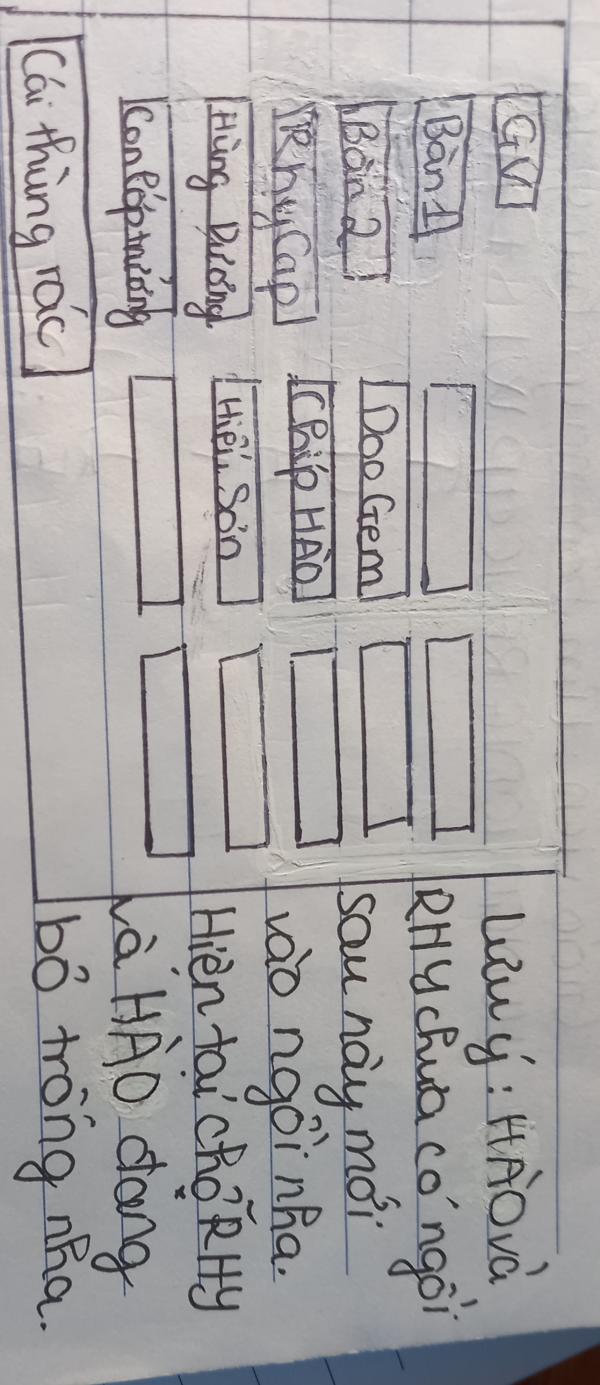 GV
Bàn 1
Bàn 2
Doo Gem
Rhy Cap
Chíp HÀO
Hùng Dương
Sơn
Con lớp trưởng
Cái thùng rác
Lưu ý: HÀO và
RHY chưa có ngồi
sau này mới
vào ngồi nha.
Hiện tại chỗ RHY
và HÀO đang
bỏ trống nha.